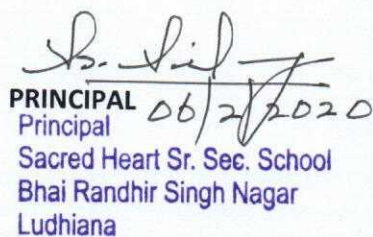 PRINCIPAL 06/2/2020
Principal
Sacred Heart Sr. Sec. School
Bhai Randhir Singh Nagar
Ludhiana